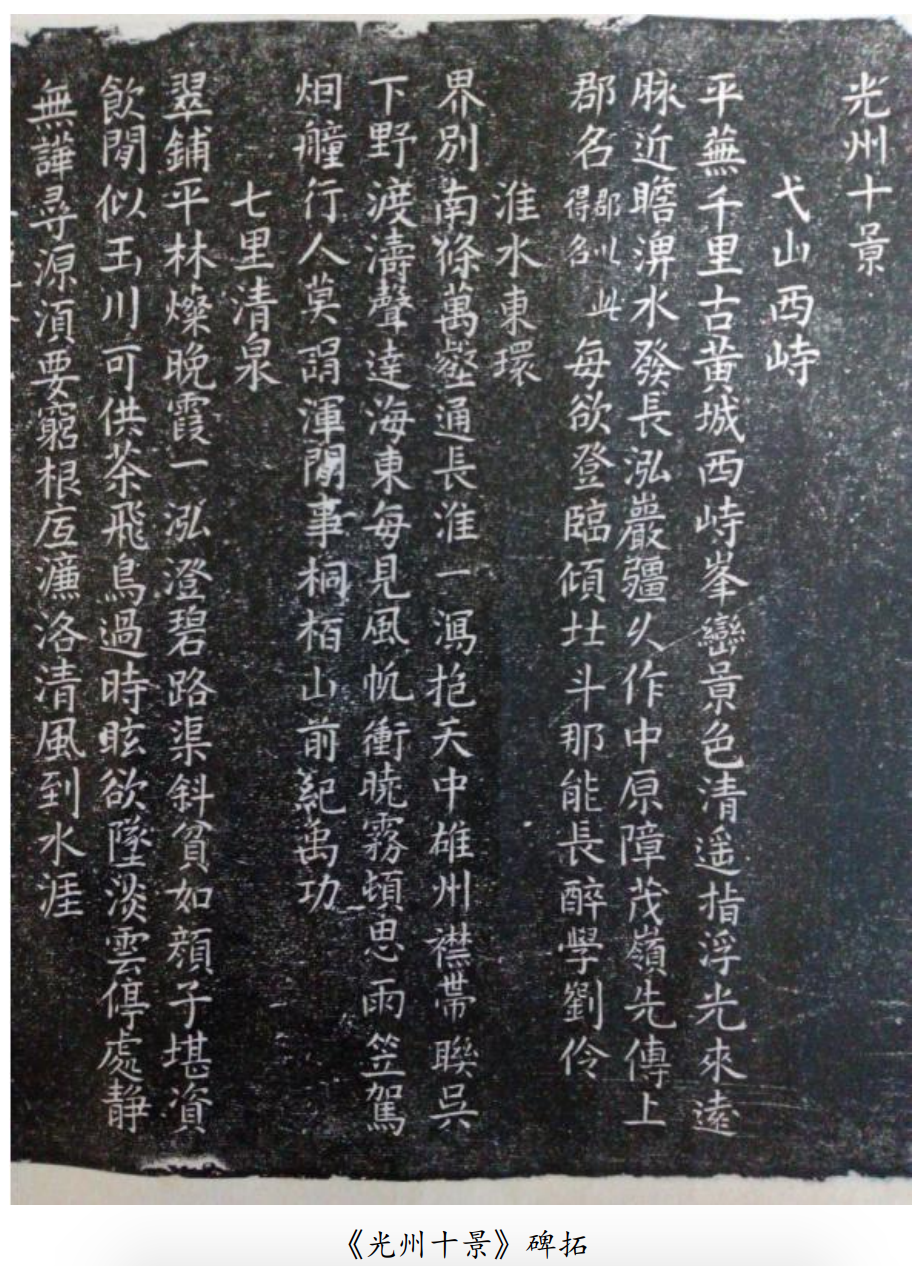 光州十景
弋山西峙
平蕪千里古黃城西峙峯巒景色清遥指浮光來遠
脉近瞻淠水發長泓巖疆久作中原障茂嶺先傳上
郡名郡以此得名每欲登臨傾北斗那能長醉學劉伶
淮水東環
界別南條萬壑通長淮一瀉抱天中雄州襟帶聯吳
下野渡濤聲達海東每見風帆衝曉霧頓思雨笠駕
烟艟行人莫謂渾閒事桐栢山前紀禹功
七里清泉
翠鋪平林燦晚霞一泓澄碧路渠斜貧如顏子堪資
飲閒似玉川可供茶飛鳥過時眩欲墜淡雲停處靜
無譁尋源須要窮根底濂洛清風到水涯
《光州十景》碑拓